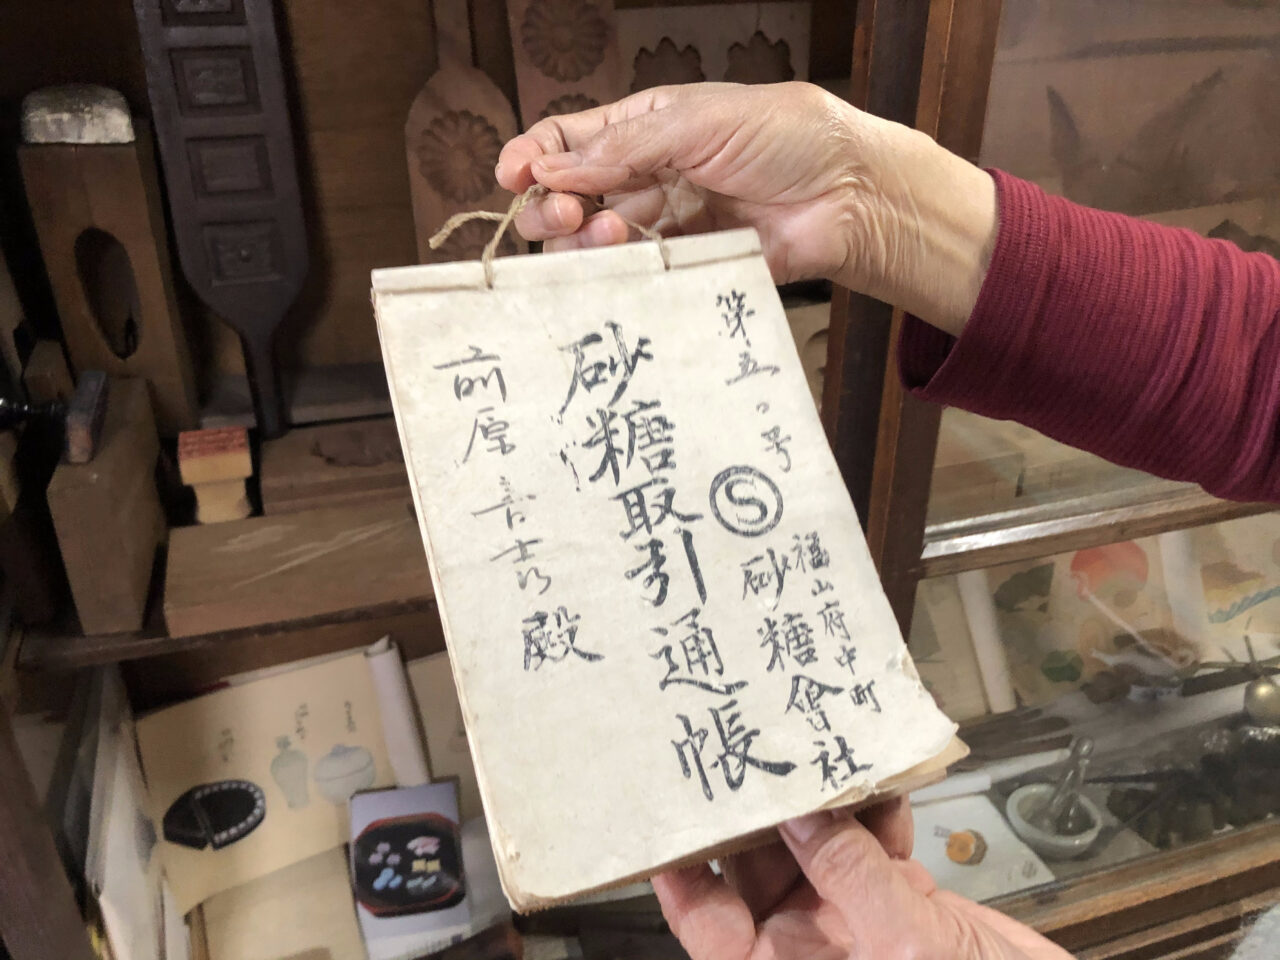 第五〇号
福山府中町
Ⓢ砂糖會社
砂糖取引通帳
前原喜吉殿